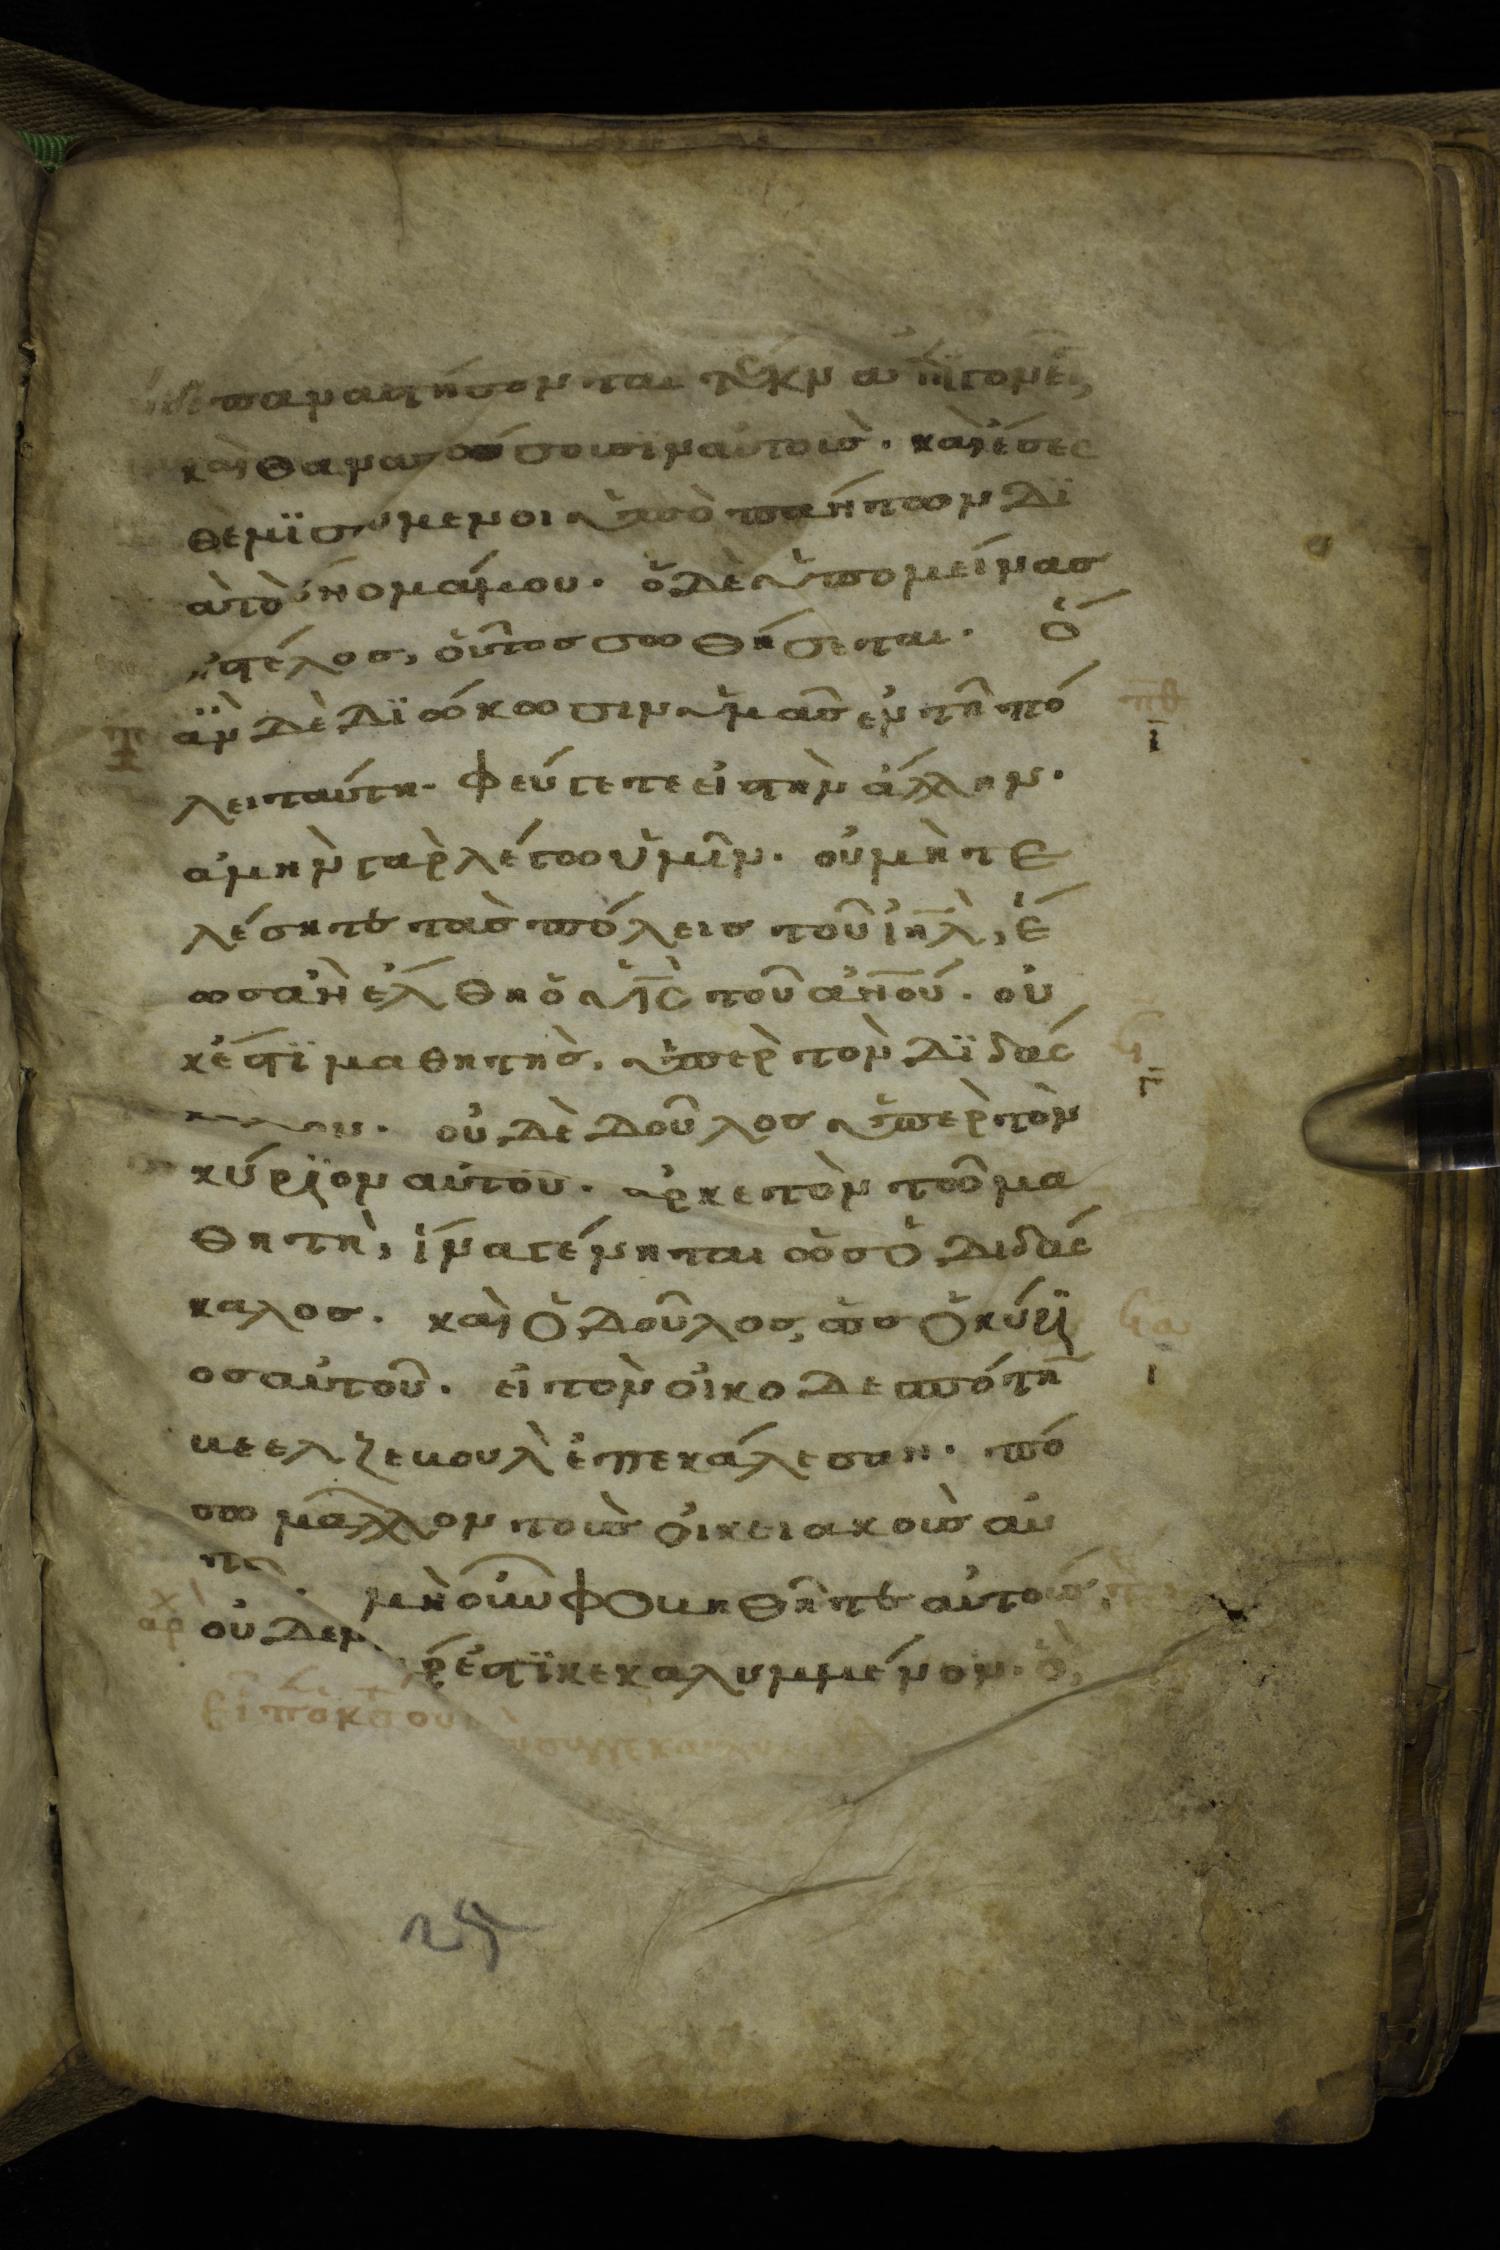 παναστήσονται τέκνα ἐπὶ γονεῖς
καὶ θανατώσουσιν αὐτοὺς. καὶ ἔσες
θε μϊσούμενοι ὑπὸ πάντων δϊ
ὰ τὸ ὄνομά μου. ὁ δὲ ὑπομείνας
τέλος, οὗτος σωθήσεται. ὅ
πβ
ι
ταν δὲ δϊώκωσιν ὑμᾶς ἐν τῆ πό
λει ταύτη. φεύγετε εἰ τὴν ἄλλην.
ἀμὴν γὰρ λέγω ὑμῖν. οὐ μὴ τε
λέσητε τὰς πόλεις τοῦ ἰη̅λ̅, ἕ
ως ἂν ἔλθη ὁ υ̅ς̅ τοῦ α̅ν̅ο̅υ̅. οὐ
κ ἔστϊ μαθητὴς, ὑπὲρ τὸν δϊδάσ
ϟ
γ
ου. οὐδὲ δοῦλος ὑπὲρ τὸν
κύρϊον αὐτοῦ. ἀρκετὸν τῶ μα
θητῆ, ἵνα γένηται ὡς ὁ διδάσ
καλος. καὶ ὁ δοῦλος, ὡς ὁ κύρϊ
ϟα
ι
ος αὐτοῦ. εἰ τὸν οἰκοδεσπότη
βεελζεβοὺλ ἐπεκάλεσαν. πό
σω μᾶλλον τοὺς οἰκειακοὺς αὐ
μὴ οὖν φοβηθῆτε αὐτούς.
αρχ
οὐδὲν γάρ ἐστϊ κεκαλυμμένον. ὃ
εἶπεν ὁ κς
25